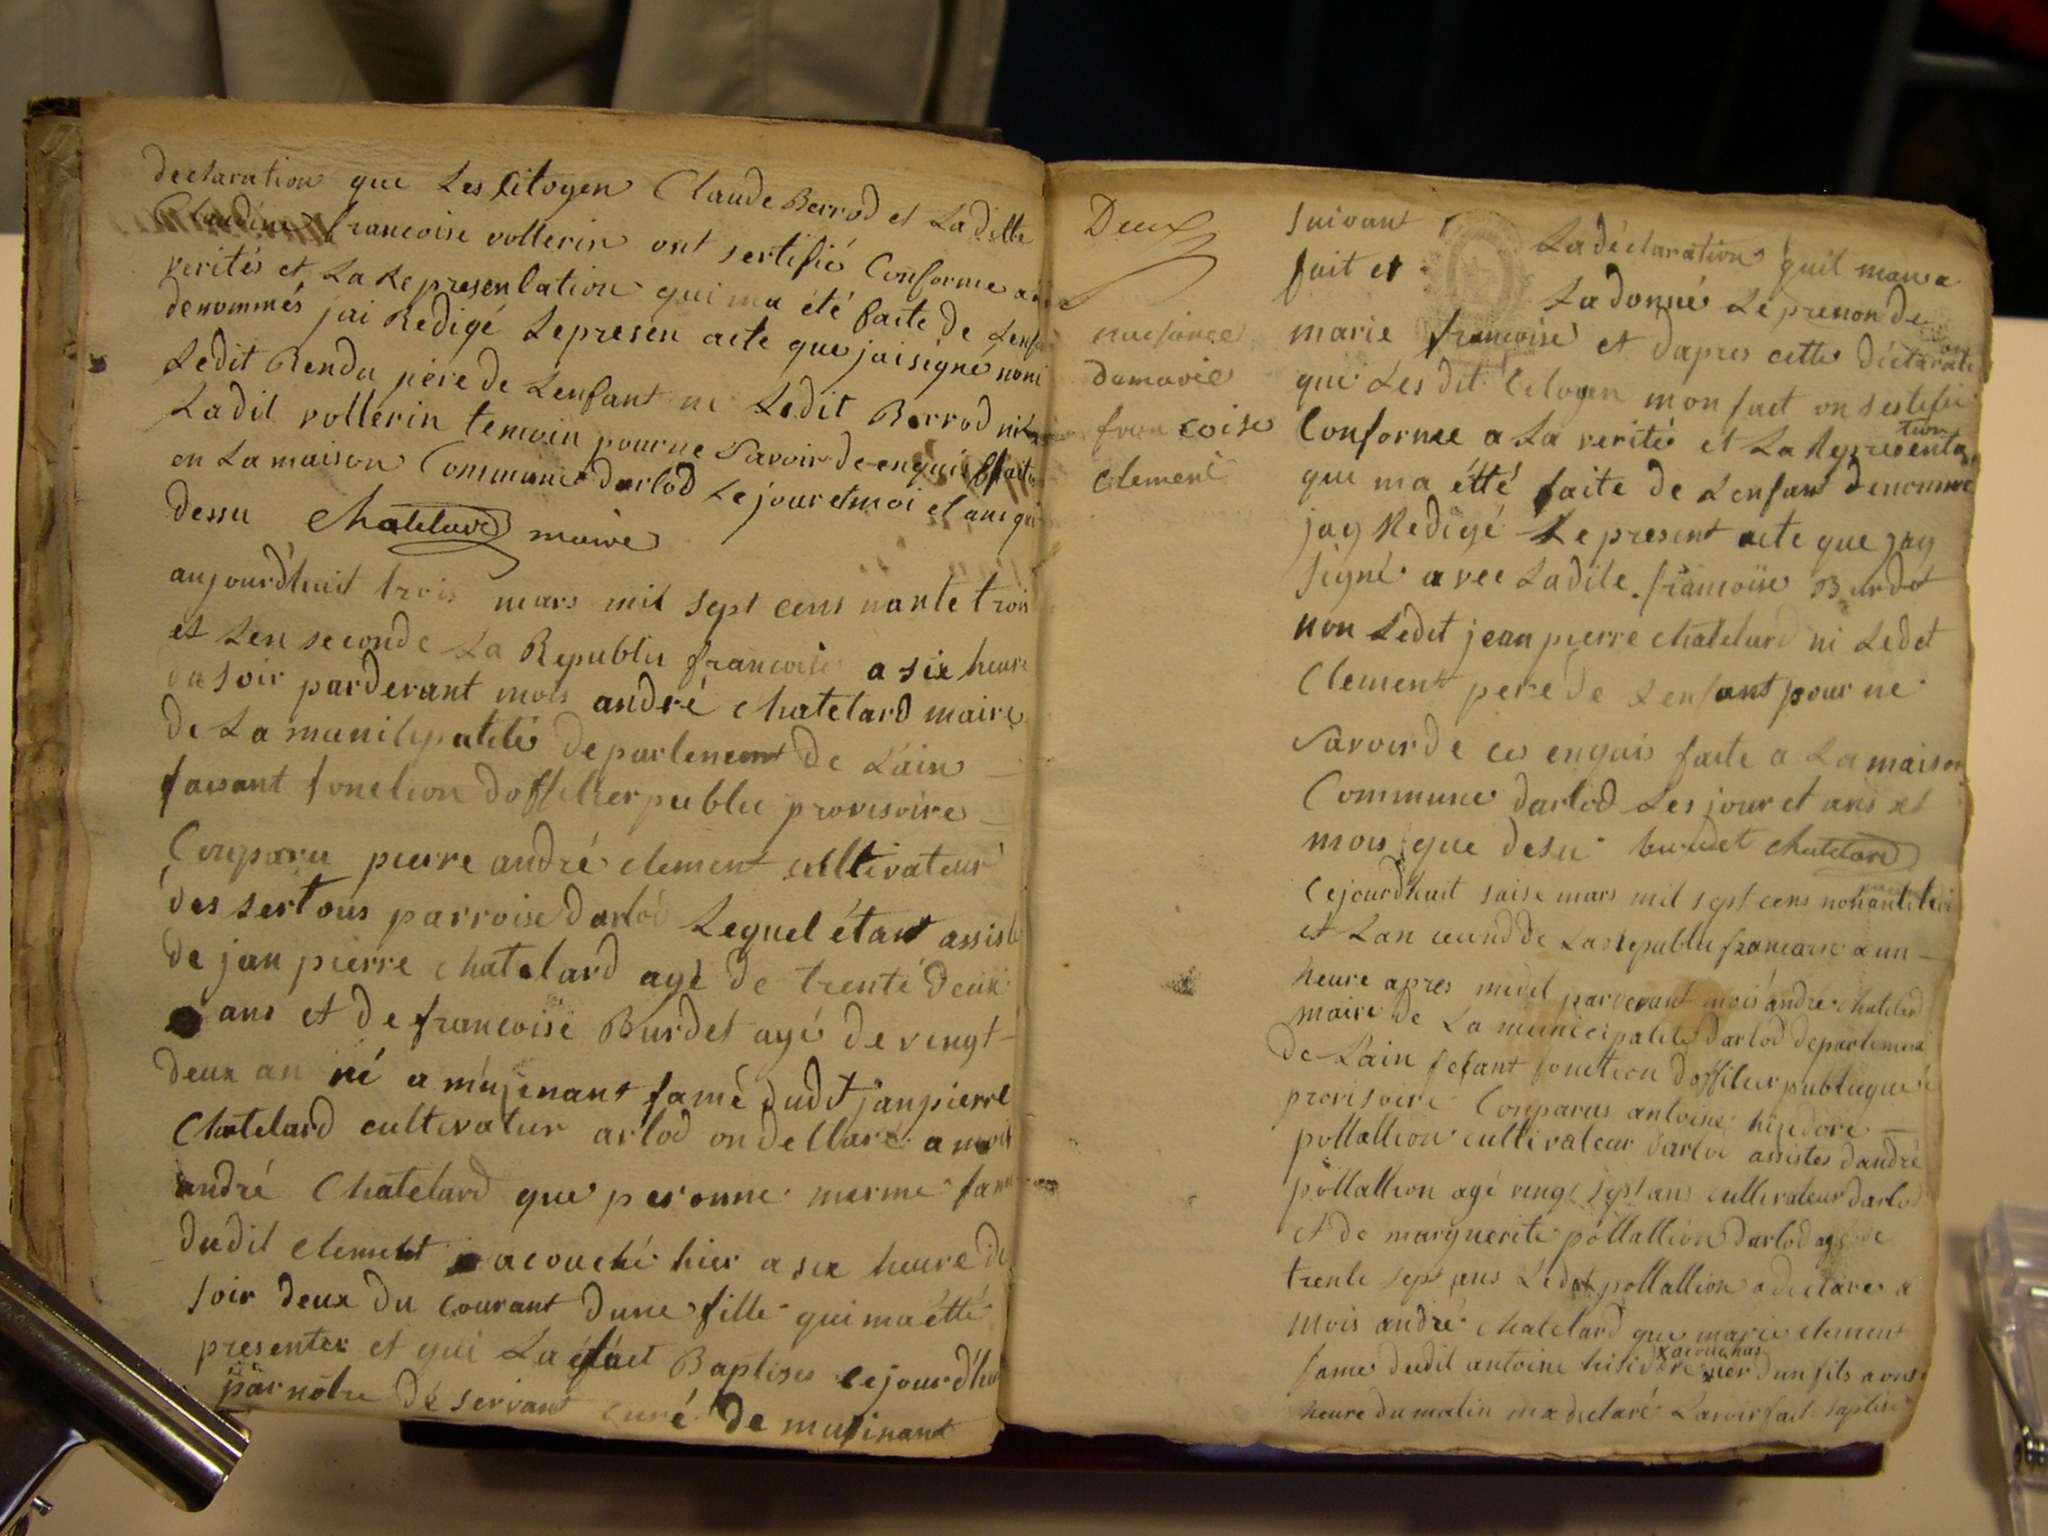 declaration que Les Citoyen Claude Berrod et Ladille
Claudine francoise vollerin ont sertifié Conforme a
verités et La Representation qui ma été faite de Lenf
denommés jai Redigé Lepresen acte que jaisigné noni
Ledit Rendu pere de Lenfant ni Ledit Berrod ni
Ladit vollerin temoin pour ne Savoir de enquis fait
en La maison Commune darlod Le jour et moi et ans que
dessu Chatelard maire
aujourdhuit trois mars mil sept cens nante trois
et Len seconde La Republis francoise a six heure
du soir parderant mois andré Chatelard maire
de La municipalité departement de Lain
faisant fonction dofficier publie provisoire
Conparu pierre andré clement cultivateur
des sertous parroise darlod Lequel étant assisté
de jan pierre chatelard agé de trenté deux
ans et de francoise Burdet agé de vingt
deux an né a musinant famé dudt jan pierre
Chatelard cultivatur arlod on dellaré a mois
andré Chatelard que peronne merme fame
dudit clement acouché hier a six heure de
soir deux du courant dune fille qui ma étté
presenter et qui La fait Baptises cejourdhui
par notre déservant curé de musinant
Deux
naisance
de marie
francoise
clement
suivant La déclaration quil man a
fait et La donné Le prenon de
marie francoise et dapres cette déclaration
que Les dit Citoyen mon fait on sertifié
Conforme a La verité et La Representation
que ma étté faite de Lenfant denommé
jay Redigé Le present acte que jay
signé avec Ladite francoise Burdet
non Ledit jean pierre chatelard ni Ledet
Clement pere de Lenfant pour ne
savoir de ce enquis faite a La maison
Commune darlod Les jour et ans et
mois que desu burdet chatelard
Cejourdhuit saise mars mil sept cens nonante troi
et Lan second de La Republie francaise a un
heure apres midit parderant mois andre chatelard
maire de La municipalité darlod departement
de Lain fesant fonction dofficier publique
provisoire Conparus antoine hisidore
pollallion cultivateur darlod assistes dandré
pollallion agé vingt sept ans cultivateur darlod
et de marguerite pollallion darlod agé de
trente sept ans Ledit pollallion a declare a
mois andré chatelard que marie clement
fame dudit antoine hisidore x acouché hier dun fils a onse
heure du matin ma declaré Lavoir fait baptisé